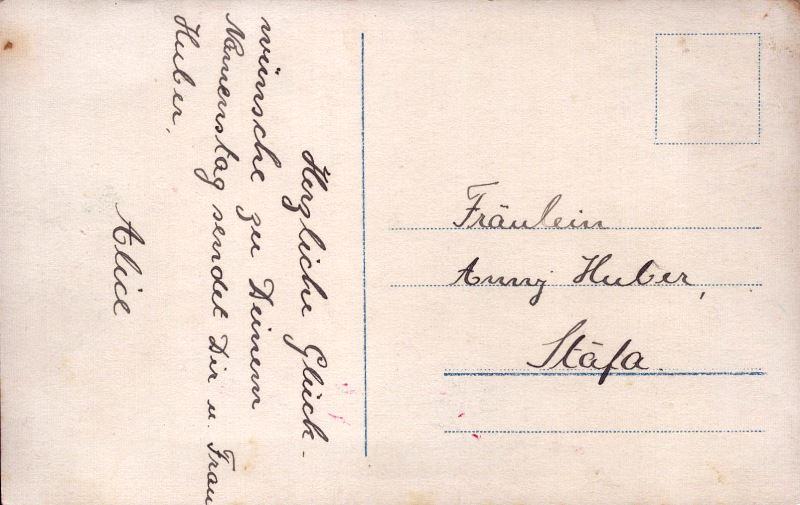 Herzliche Glück-
wünsche zu Deinem
Namenstag sendet Dir u. Frau
Huber,
Alice
Fräulein
Anny Huber,
Stäfa.